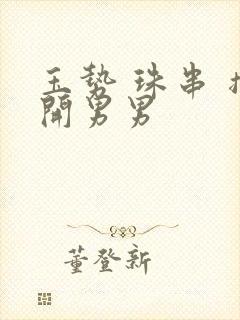 玉势 珠串
開男男
董登新